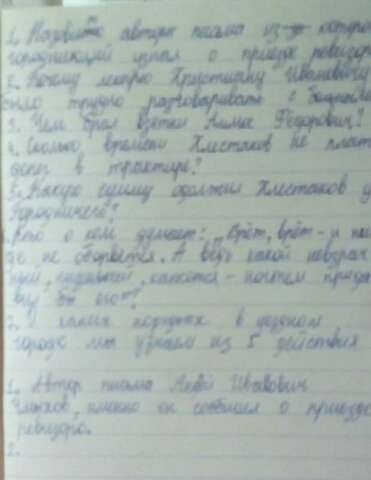 1. Назвите автора письма из-за которо
городничий узнал о приезде ревизор
2. Почему лекарю Христиану Ивановичу
было трудно разговаривать с больным
3. Чем брал взятки Аммос Федорович?
4. Сколько времени Хлестаков не плат
денег в трактире?
5. Какую сумму одолжил Хлестаков у
Городничего?
Кто о ком думает: „Врёт, врёт - и ни
где не оборвется. А ведь какой невзрач
ный, низенький, кажется - ногтем прида
вил бы его"?
7. О каких порядках в уездном
городе мы узнаем из 5 действия
1. Автор письма Иванович
Чмыхов, именно он сообщил о приезде
ревизора.
2.